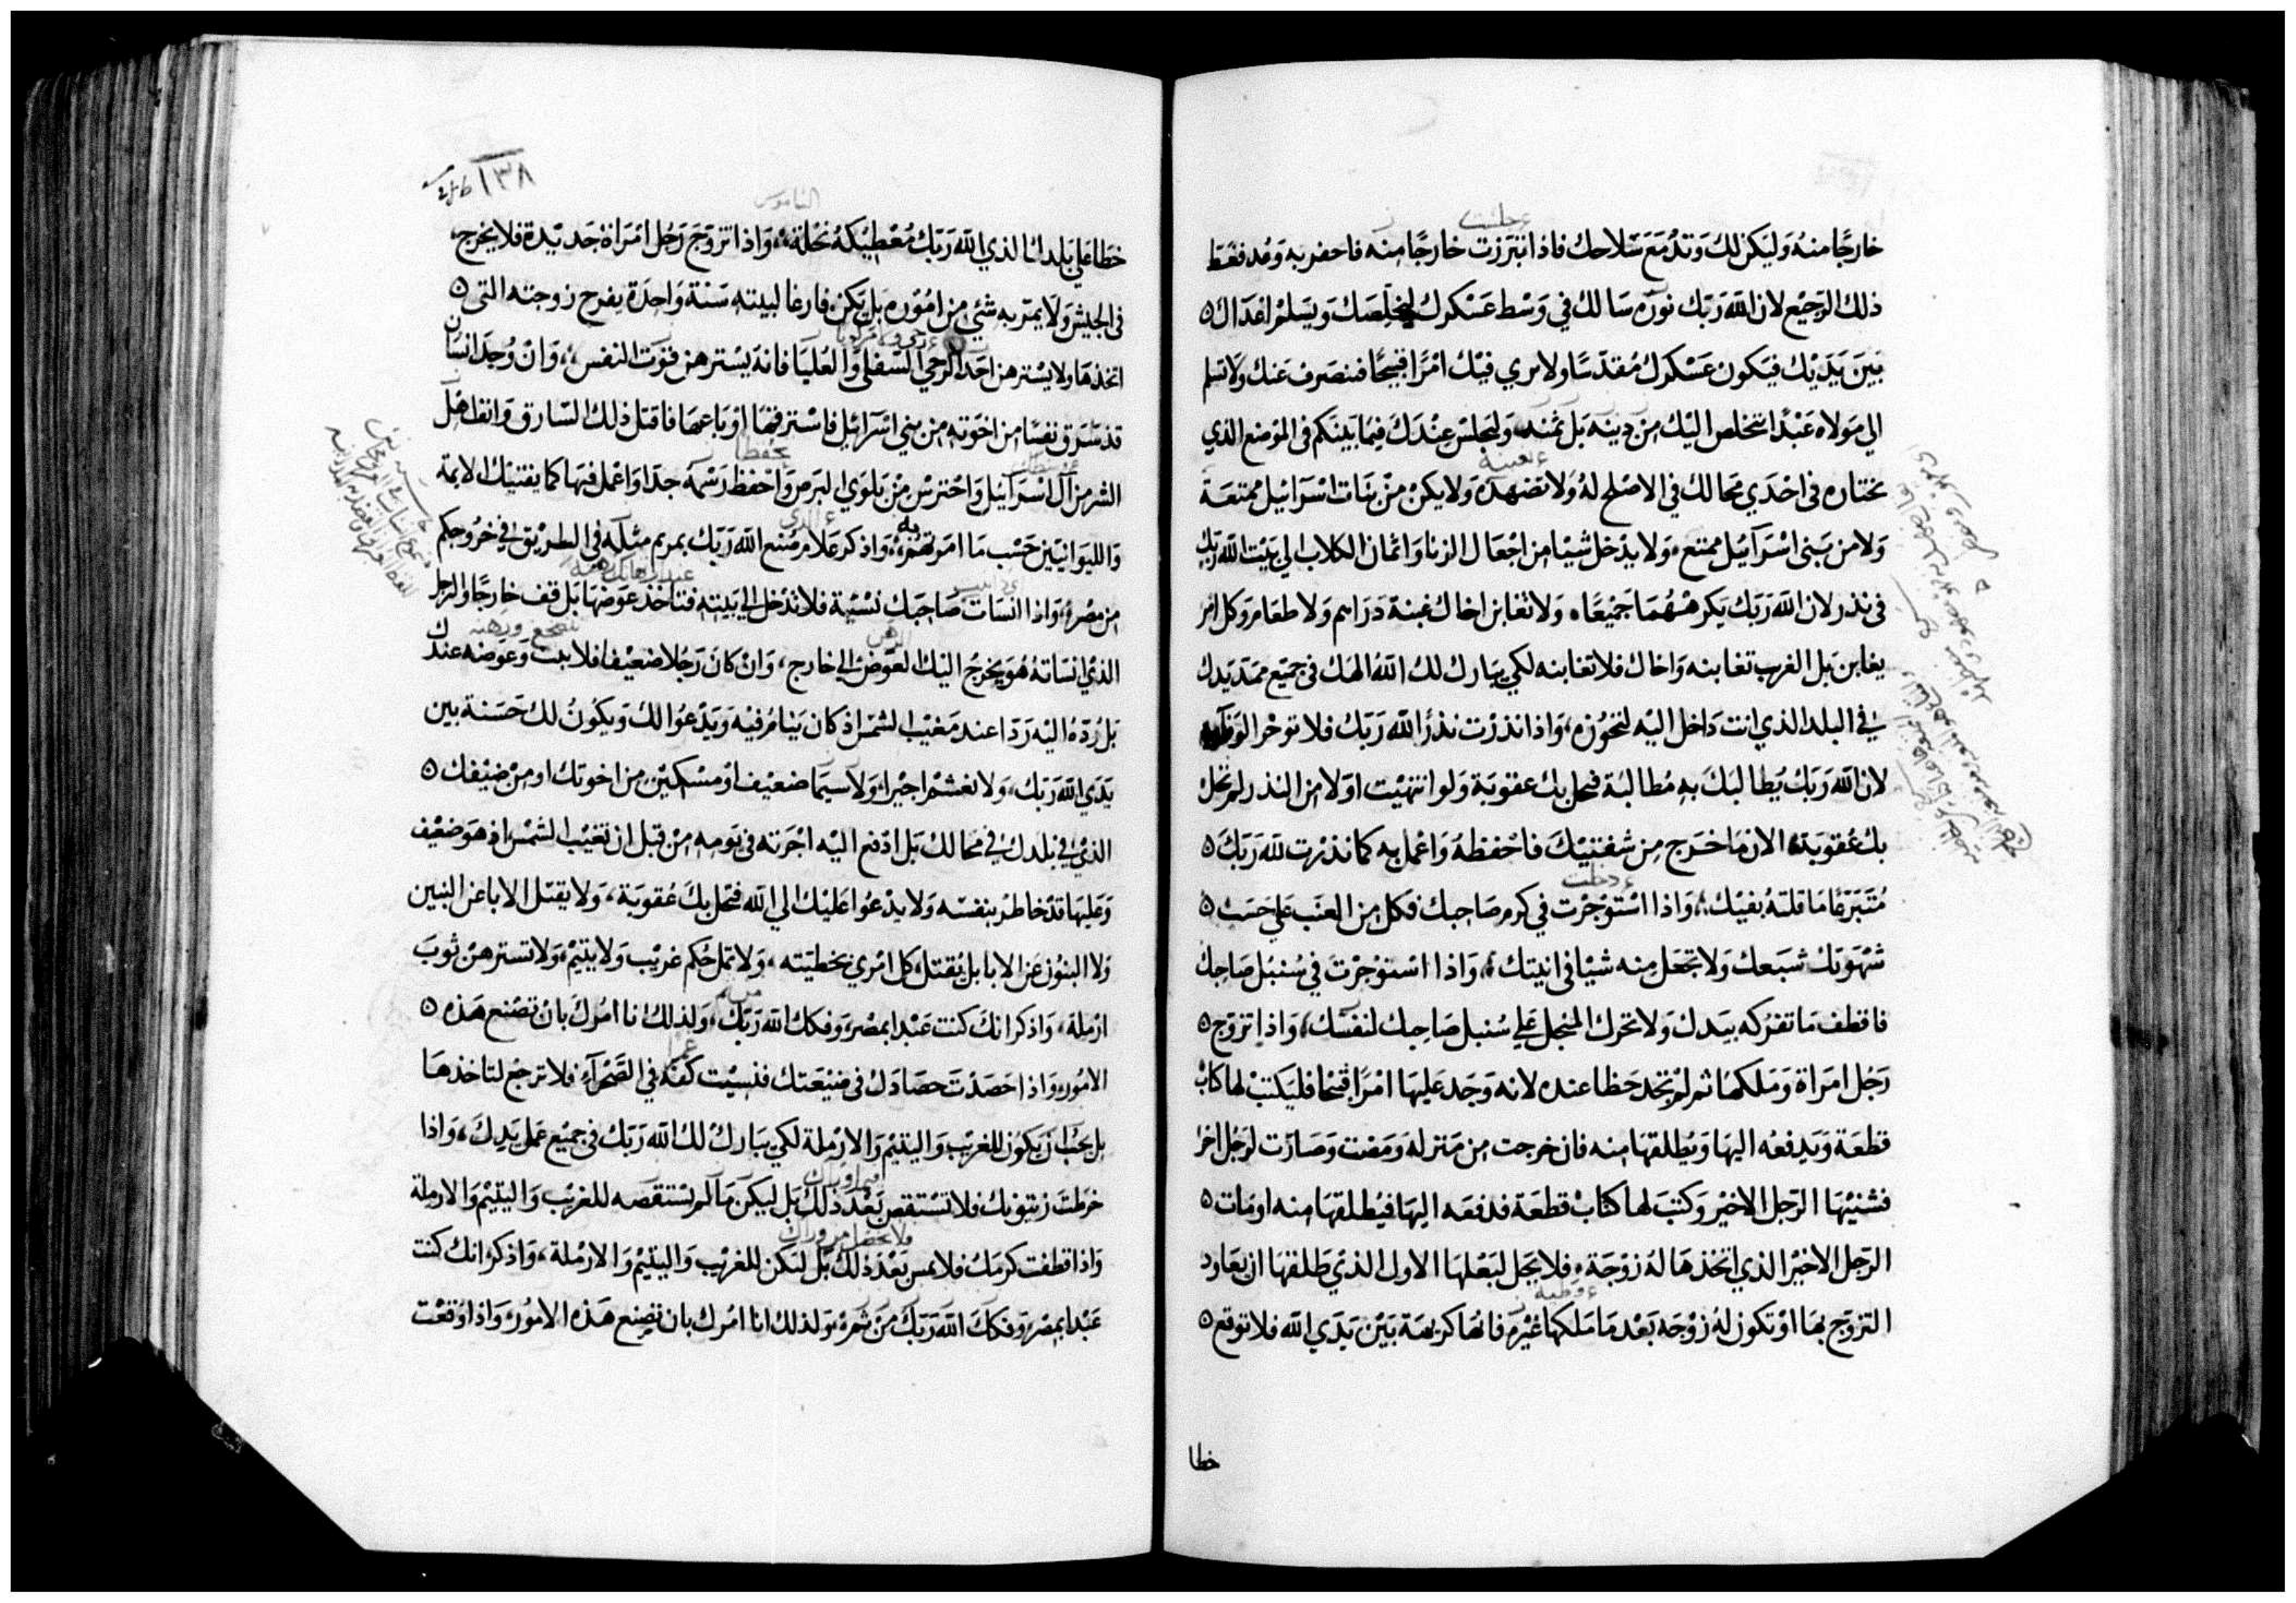 خارجًا منه وليكن لك وتد مع سلاحك فاذا انتبرزت خارجًا منه فاحفر به وعد فغط
ذلك الرجيع لان الله ربك نوره سالك في وسط عسكرك ليخلصك ويسلم اعداك
بين يديك فيكون عسكرك مقدسًا ولا يري فيك امرًا قبيحًا فينصرف عنك ولا تسلم
الي مولاه عبدًا استخلص اليك من دينه بل تمنه وليجلس عندك فيما بينكم في الموضع الذي
يختاره في احدي محالك في الاصلح له ولا تضهده ولا يكن من بنات اسرائيل ممتعة
ولا من بني اسرآئيل ممتع ولا يدخل شيا من اجعال الزنا واثمان الكلاب الي بيت الله ربك
في نذر لان الله ربك يكرههما جميعًا ولا تغابن اخاك غبنة دراهم ولا طعام وكل امر
يغابن بل الغريب تغابنه واخاك فلا تغابنه لكي يبارك لك الله الهك في جميع ممتد يدك
في البلد الذي انت داخل اليه لتحوزه واذا نذرت نذرًا لله ربك فلا توخر الوفا به
لان الله ربك يطالبك به مطالبة فتحل بك عقوبة ولو انتهيت اولا من النذر لم تحل
بك عقوبة الان ما خرج من شفتيك فاحفظه واعمل به كما نذرت لله ربك
متبرعًا ما قلته بفيك واذا استوجرت في كرم صاحبك فكل من العنب علي حسب
شهوتك شبعك ولا تجعل منه شيا في انيتك واذا استوجرت في سنبل صاحبك
فاقطف ما تفركه بيدك ولا تحرك المنجل علي سنبل صاحبك لنفسك واذا تزوج
رجل امراة وملكها ثم لم تجد حظا عنده لانه وجد عليها امرًا قبحا فليكتب لها كتاب
قطعة ويدفعه اليها ويطلقها منه فان خرجت من منزله ومضت وصارت لرجل اخر
فشنيها الرجل الاخير وكتب لها كتاب قطعة فدفعه اليها فيطلقها منه او مات
الرجل الاخير الذي اتخذها له زوجة فلا يحل لبعلها الاول الذي طلقها ان يعاود
التزوج بها او تكون له زوجه بعد ما ملكها غيره فانها كريهة بين يدي الله فلا توقع
خطا
١٣٨
الناموس
خطا علي بلدك الذي الله ربك معطيكه نحلة واذا تزوج رجل امراة جديدة فلا يخرج
في الجيش ولا يمر به شئ من اموره بل يكن فارغا لبيته سنة واحدة يفرح زوجته التي
اتخذها ولا يسترهن احد الرحي السفلي والعليا فانه يسترهن قوت النفس وان وجد انسان
قد سرق نفسًا من اخوته من بني اسرائيل فاسترقها او باعها فاقتل ذلك السارق وانف اهل
الشر من آل اسرآئيل واحترس من بلوي البرص واحفظ رسمه جدا واعمل فيها كما يفتيك الايمة
والليوانيين حسب ما امرتهم به واذكر علام صنع الله ربك بمريم مثله في الطريق في خروجكم
من مصر واذا انسات صاحبك نسئة فلا تدخل الي بيته فتاخذ عوضها بل قف خارجًا والرجل
الذي انساته هو يخرج اليك العوض الي خارج وان كان رجلا ضعيفا فلا تبت وعوضه عندك
بل رده اليه ردا عند مغيب الشمس اذ كان ينام فيه ويدعوا لك ويكون لك حسنة بين
يدي الله ربك ولا تغشم اجيرا ولا سيما ضعيف او مسكين من اخوتك او من ضيفك
الذي في بلدك في محالك بل ادفع اليه اجرته في يومه من قبل ان تغيب الشمس اذ هو ضعيف
وعليها قد خاطر بنفسه ولا يدعوا عليك الي الله فتحل بك عقوبة ولا يقتل الابا عن البنين
ولا البنون عن الابا بل يقتل كل امري بخطيته ولا تمل حكم غريب ولا يتيم ولا تسترهن ثوب
ارملة واذكر انك كنت عبدا بمصر وفكك الله ربك ولذلك انا امرك بان تصنع هذه
الامور واذا حصدت حصادك في ضيعتك فنسيت كفة في الصحرآء فلا ترجع لتاخذها
بل يجب ان يكون للغريب واليتيم والارملة لكي يبارك لك الله ربك في جميع عمل يدك واذا
خرطت زيتونك فلا تستقص بعد ذلك بل ليكن ما لم تستقصه للغريب واليتيم والارملة
واذا قطفت كرمك فلا تمس بعد ذلك بل لتكن للغريب واليتيم والارملة واذكر انك كنت
عبدا بمصر وفكك الله ربك من ثم ولذلك انا امرك بان تصنع هذه الامور واذا وقعت